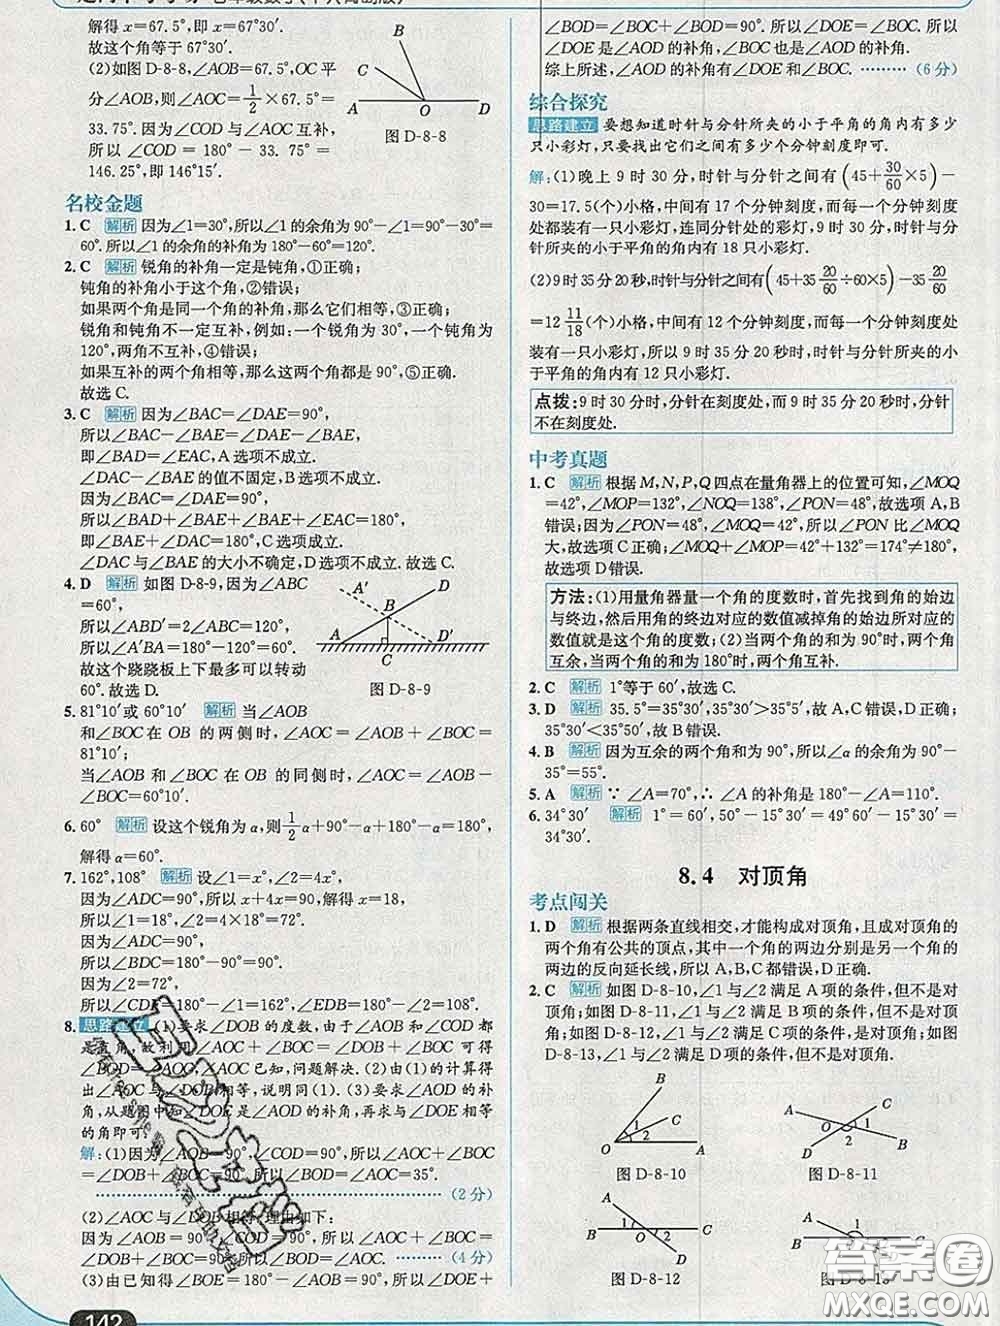 解得 x=67.5°,即 x=67°30′.
故这个角等于 67°30′.
(2)如图 D-8-8,∠AOB=67.5°,OC 平
分∠AOB,则∠AOC=1/2×67.5°=
33.75°.因为∠COD 与∠AOC 互补,
所以∠COD=180°-33.75°=
146.25°,即 146°15′.
B
C
A O D
图 D-8-8
名校金题
1. C 解析 因为∠1=30°,所以∠1的余角为 90°-∠1=90°-30°=
60°.所以∠1的余角的补角为 180°-60°=120°.
2. C 解析 锐角的补角一定是钝角,①正确;
钝角的补角小于这个角,②错误;
如果两个角是同一个角的补角,那么它们相等,③正确;
锐角和钝角不一定互补,例如:一个锐角为 30°,一个钝角为
120°,两角不互补,④错误;
如果互补的两个角相等,那么这两个角都是 90°,⑤正确.
故选 C.
3. C 解析 因为∠BAC=∠DAE=90°,
所以∠BAC-∠BAE=∠DAE-∠BAE,
即∠BAD=∠EAC,A 选项不成立.
∠DAC-∠BAE 的值不固定,B 选项不成立.
因为∠BAC=∠DAE=90°,
所以∠BAD+∠BAE+∠BAE+∠EAC=180°,
即∠BAE+∠DAC=180°,C 选项成立.
∠DAC 与∠BAE 的大小不确定,D 选项不成立.故选 C.
4. D 解析 如图 D-8-9,因为∠ABC
=60°,
所以∠ABD′=2∠ABC=120°.
所以∠A′BA=180°-120°=60°.
故这个跷跷板上下最多可以转动
60°.故选 D.
A′ D
B
A C D′
图 D-8-9
5. 81°10′或 60°10′ 解析 当∠AOB
和∠BOC 在 OB 的两侧时,∠AOC=∠AOB+∠BOC=
81°10′;
当∠AOB 和∠BOC 在 OB 的同侧时,∠AOC=∠AOB-
∠BOC=60°10′.
6. 60° 解析 设这个锐角为 α,则1/2α+90°-α+180°-α=180°,
解得 α=60°.
7. 162°,108° 解析 设∠1=x°,∠2=4x°,
因为∠ADC=90°,所以 x+4x=90,解得 x=18.
所以∠1=18°,∠2=4×18°=72°.
因为∠ADC=90°,
因为∠2=72°,
所以∠CDE=180°-∠1=162°,∠EDB=180°-∠2=108°.
8. 思路建立 (1)要求∠DOB 的度数,由于∠AOB 和∠COD 都
是直角,故利用∠AOC+∠BOC=∠DOB+∠BOC 可得
∠BOD=∠AOC,∠AOC 已知,问题解决.(2)由(1)的计算得
出∠AOC 与∠DOB 相等,说明同(1).(3)要求∠AOD 的补
角,从题图中找出∠BOC 是∠AOD 的补角,再求与∠DOE 相等
的角即可.
解:(1)因为∠AOB=90°,所以∠AOC+∠BOC=90°.
∠DOB+∠BOC=90°,所以∠BOD=∠AOC=35°.
(2 分)
(2)∠AOC 与∠DOB 相等,理由如下:
因为∠AOB=90°,所以∠AOC+∠BOC=90°.
∠DOB+∠BOC=90°,所以∠BOD=∠AOC. ……… (4 分)
(3)由已知得∠BOE=180°-∠AOB=90°,所以∠DOE+
142
∠BOD=∠BOD+∠BOC=90°,所以∠DOE=∠BOC.所
以∠DOE 是∠AOD 的补角,∠BOC 也是∠AOD 的补角.
综上所述,∠AOD 的补角有∠DOE 和∠BOC. ……… (6 分)
综合探究
思路建立 要想知道时针与分针所夹的小于平角的角内有多少
只小彩灯,只要找出它们之间有多少个分钟刻度即可.
解:(1)晚上 9 时 30 分,时针与分针之间有(45+30/60×5)-
30=17.5(个)小格,中间有 17 个分钟刻度,而每一个分钟刻度
处都有一只小彩灯,连同分针处的小彩灯,9 时 30 分,时针与分
针所夹的小于平角的角内有 18 只小彩灯.
(2)9 时 35 分 20 秒,时针与分针之间有(45+35 20/60÷60×5)-35 20/60
=12 11/18(个)小格,中间有 12 个分钟刻度,而每一个分钟刻度处
装有一只小彩灯,所以 9 时 35 分 20 秒时,时针与分针所夹的小
于平角的角内有 12 只小彩灯.
点拨:9 时 30 分时,分针在刻度处,而 9 时 35 分 20 秒时,分针
不在刻度处.
中考真题
1. C 解析 根据 M,N,P,Q 四点在量角器上的位置可知,∠MOQ
=42°,∠MOP=132°,∠NOQ=138°,∠PON=48°,故选项 A,B
错误;因为∠PON=48°,∠MOQ=42°,所以∠PON 比∠MOQ
大,故选项 C 正确;∠MOQ+∠MOP=42°+132°=174°≠180°,
故选项 D 错误.
方法:(1)用量角器量一个角的度数时,首先找到角的始边
与终边,然后用角的终边对应的数值减掉角的始边所对应的
数值就是这个角的度数;(2)当两个角的和为 90°时,两个角
互余,当两个角的和为 180°时,两个角互补.
2. C 解析 1°等于 60′,故选 C.
3. D 解析 35.5°=35°30′,35°30′>35°5′,故 A,C 错误,D 正确;
35°30′<35°50′,故 B 错误.
4. B 解析 因为互余的两个角和为 90°,所以∠α 的余角为 90°-
35°=55°.
5. A 解析 ∵∠A=70°,∴∠A 的补角是 180°-∠A=110°.
6. 34°30′ 解析 1°=60′,50°-15°30′=49°60′-15°30′=
34°30′.
8.4 对顶角
考点闯关
1. D 解析 根据两条直线相交,才能构成对顶角,且成对顶角的
两个角有公共的顶点,其中一个角的两边分别是另一个角的
两边的反向延长线,所以 A,B,C 都错误,D 正确.
2. C 解析 如图 D-8-10,∠1与∠2 满足 A 项的条件,但不是对顶
角;如图 D-8-11,∠1与∠2 满足 B 项的条件,但不是对顶角;
如图 D-8-12,∠1与∠2 满足 C 项的条件,是对顶角;如图
D-8-13,∠1与∠2 满足 D 项的条件,但不是对顶角.
A
C
1
2
O B
图 D-8-10
A C
1
2
O
B
图 D-8-11
A
1 O
B 2 C
D
图 D-8-12
A
O
B C
图 D-8-13
答案圈
MXQE.COM